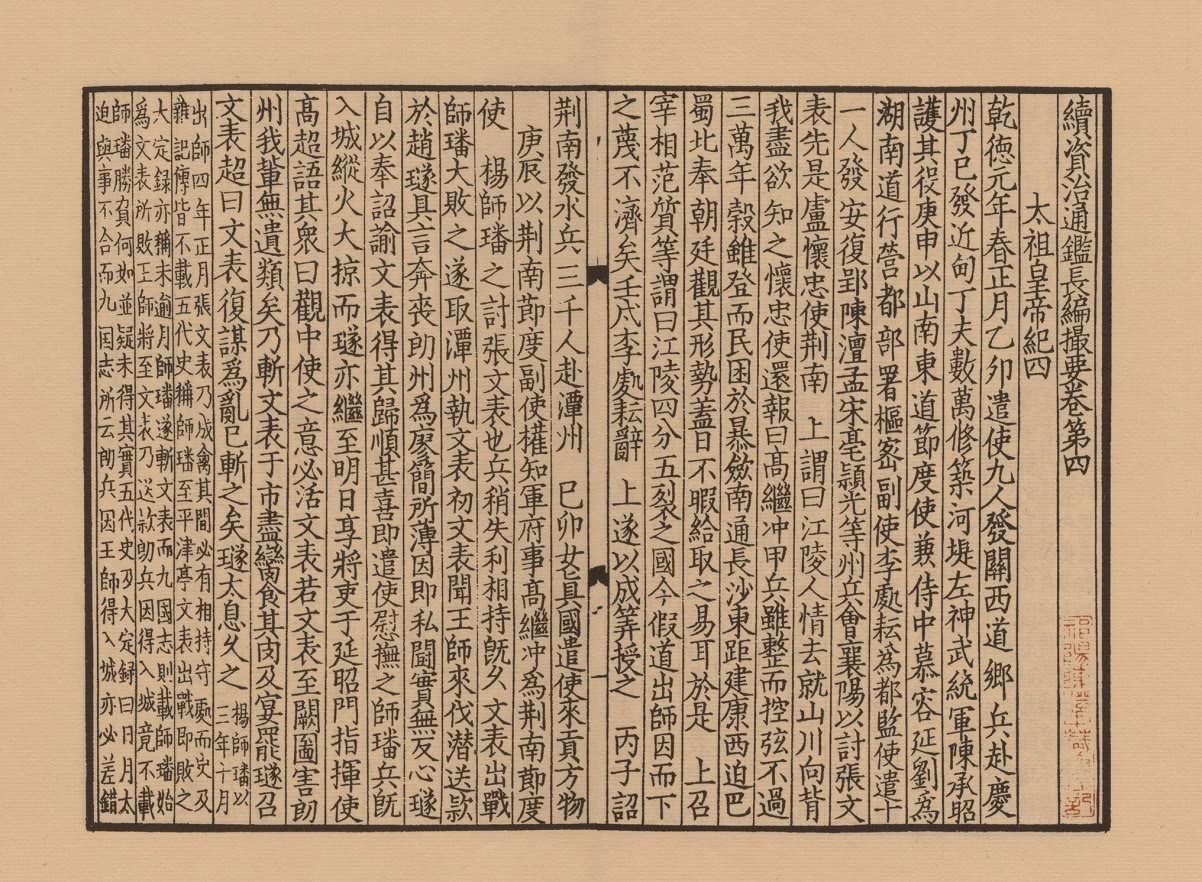 續資治通鑑長編撮要卷第四
太祖皇帝紀四
乾德元年春正月乙卯遣使九人發關西道鄉兵赴慶
州丁巳發近甸丁夫數萬修築河堤左神武統軍陳承昭
護其役庚申以山南東道節度使兼侍中慕容延釗爲
湖南道行營都部署樞密副使李處耘爲都監使遣十
一人發安復郢陳澶孟宋亳潁光等州兵會襄陽以討張文
表先是盧懷忠使荆南 上謂曰江陵人情去就山川向背
我盡欲知之懷忠使還報曰高繼冲甲兵雖整而控弦不過
三萬年穀雖登而民困於暴斂南通長沙東距建康西迫巴
蜀北奉朝廷觀其形勢蓋日不暇給取之易耳於是 上召
宰相范質等謂曰江陵四分五裂之國今假道出師因而下
之蔑不濟矣壬戌李處耘辭 上遂以成筭授之 丙子詔
荆南發水兵三千人赴潭州 己卯女真國遣使來貢方物
庚辰以荆南節度副使權知軍府事高繼冲爲荆南節度
使 楊師璠之討張文表也兵稍失利相持旣久文表出戰
師璠大敗之遂取潭州執文表初文表聞王師來伐潛送款
於趙璲具言奔喪朗州爲廖簡所薄因即私鬪實無反心璲
自以奉詔諭文表得其歸順甚喜即遣使慰撫之師璠兵旣
入城縱火大掠而璲亦繼至明日享將吏于延昭門指揮使
高超語其衆曰觀中使之意必活文表若文表至闕圖害朗
州我輩無遺類矣乃斬文表于市盡臠食其肉及宴罷璲召
文表超曰文表復謀爲亂已斬之矣璲太息久之
楊師璠以
三年十月
出師四年正月張文表乃成禽其間必有相持守處而史及
雜記傳皆不載五代史稱師璠至平津亭文表出戰即敗之
大定錄亦稱未逾月師璠遂斬文表而九國志則載師璠始
爲文表所敗王師將至文表乃送款朗兵因得入城竟不載
師璠勝負何如並疑未得其實五代史及大定録曰日月太
迫與事不合而九国志所云朗兵因王師得入城亦必差錯